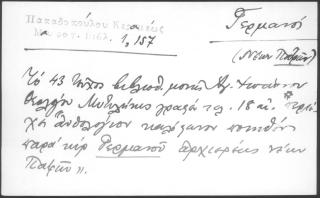 Παπαδοπούλου Κεραμέως
Μαυρογ. Βιβλ. 1, 157
Γερμανός
(Νέων Πατρῶν)
Τὸ 43 τεῦχος βιβλιοθ. μονῆς Ἁγ. Ἰωάννου
Θεολόγου Μυτιλήνης γραφὲν τ. 18 αἰ. περιέ-
χει ἀνθολόγιον καλόφωνον ποιηθὲν
παρὰ κὺρ Γερμανοῦ ἀρχιερέως νέων
Πατρῶν».